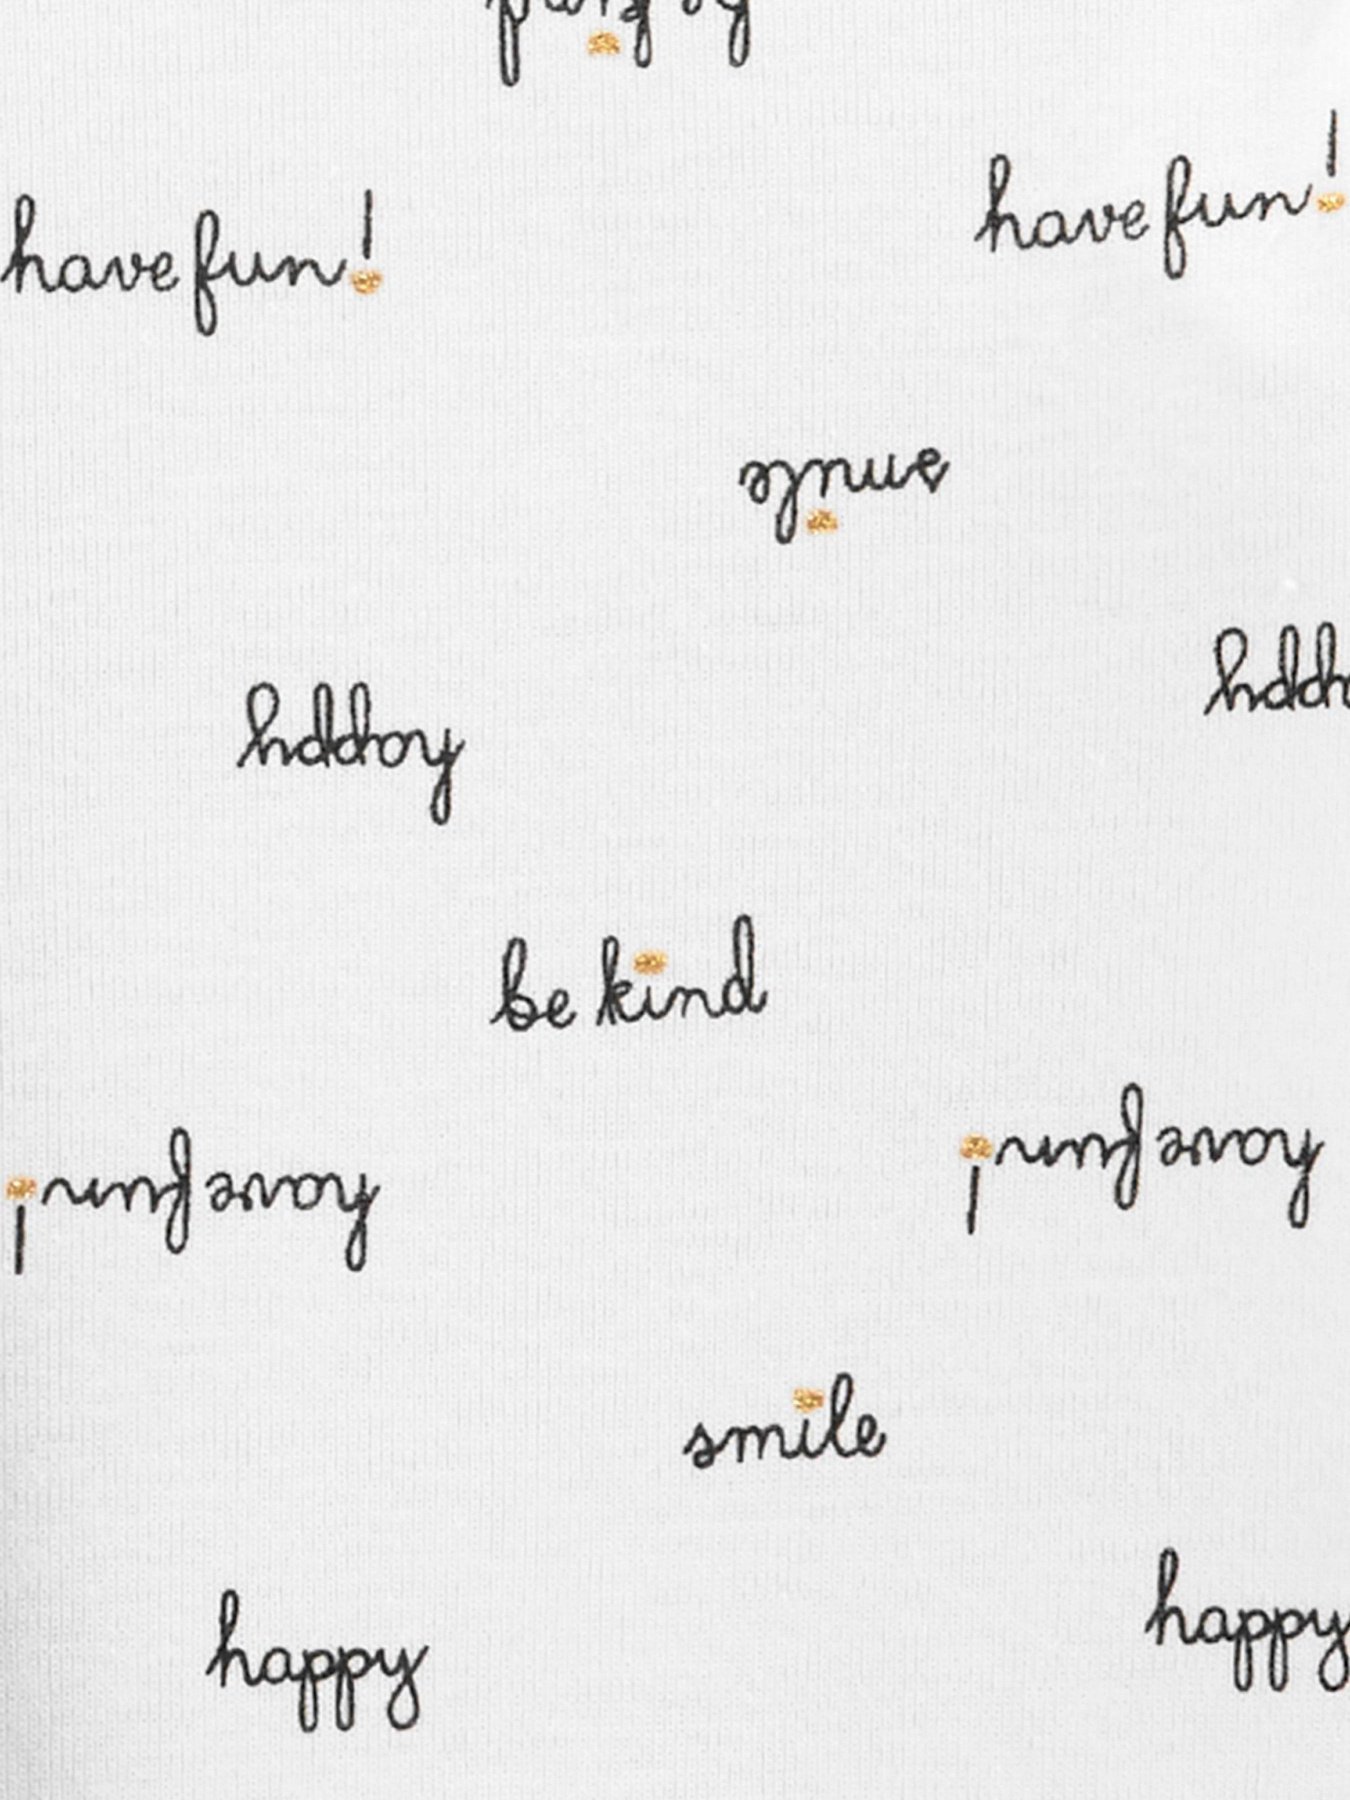 be kind
have fun!
have fun!
smile
happy
happy
be kind
have fun!
have fun!
smile
happy
happy